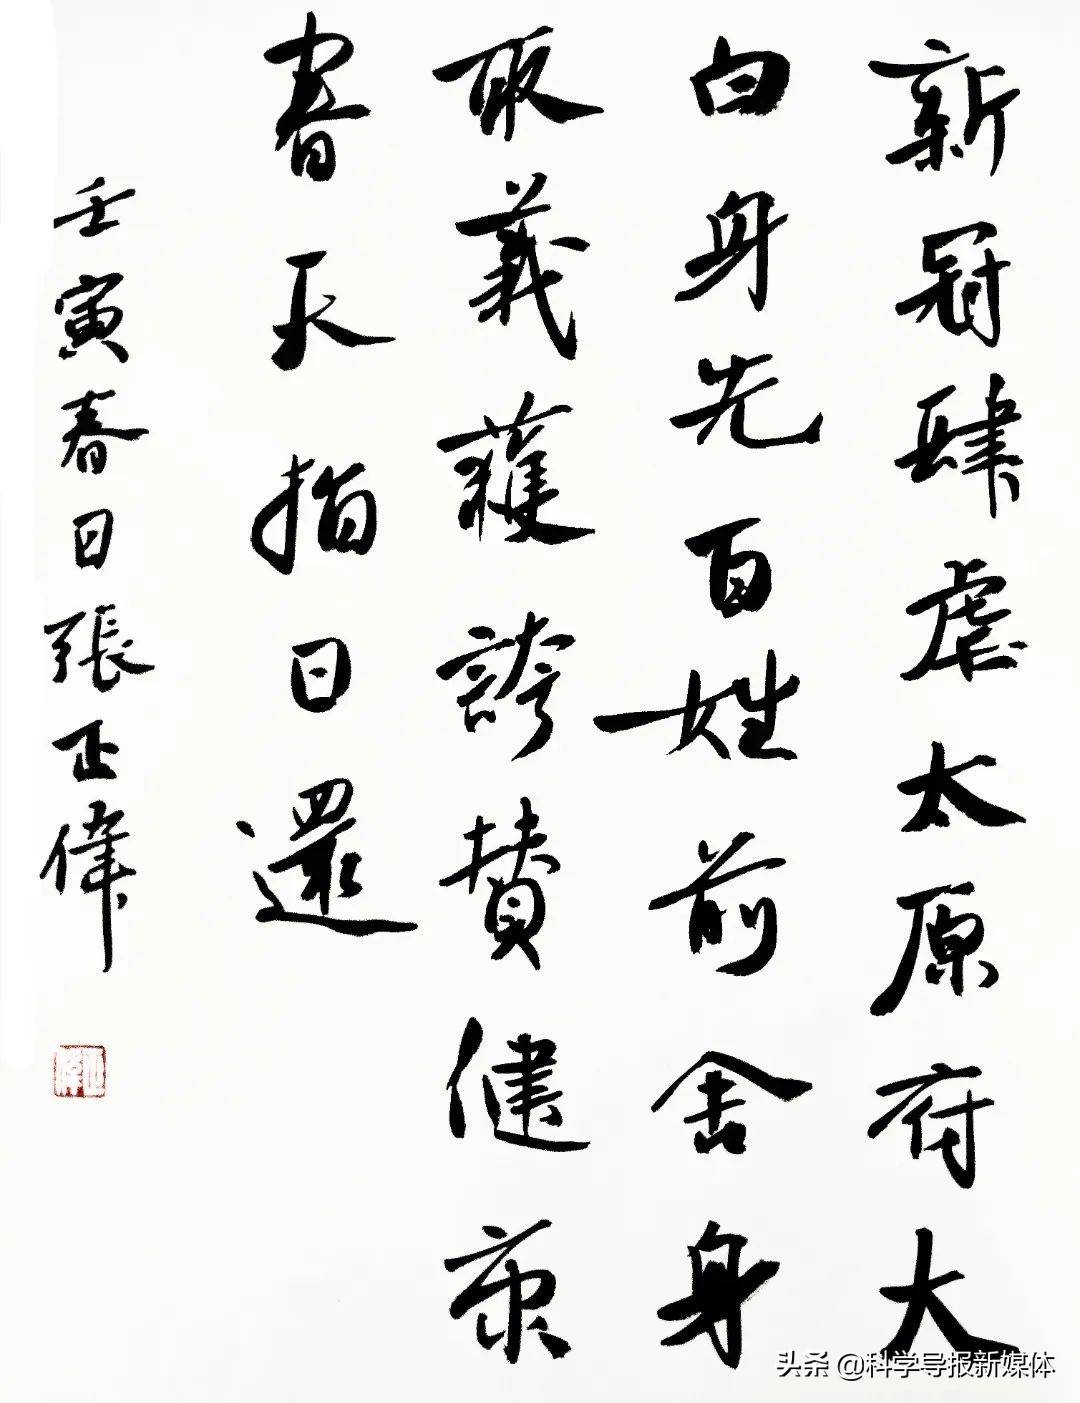 新冠肆虐太原府大
白身先百姓前舍身
取義獲誇贊健康
春天指日還
壬寅春日張正偉
正偉
头条 @科学导报新媒体